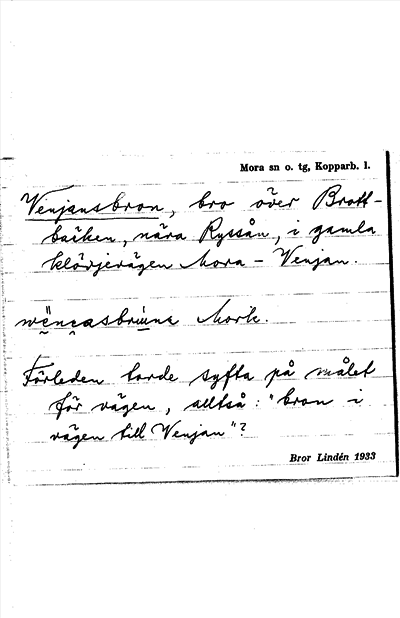 Mora sn o. tg, Kopparb. l.
Venjansbron, bro över Brott-
bäcken, nära Ryssån, i gamla
klövjevägen Mora – Venjan.
Mork.
Förleden torde syfta på målet
för vägen, alltså: "bron i
vägen till Venjan"?
Bror Lindén 1933